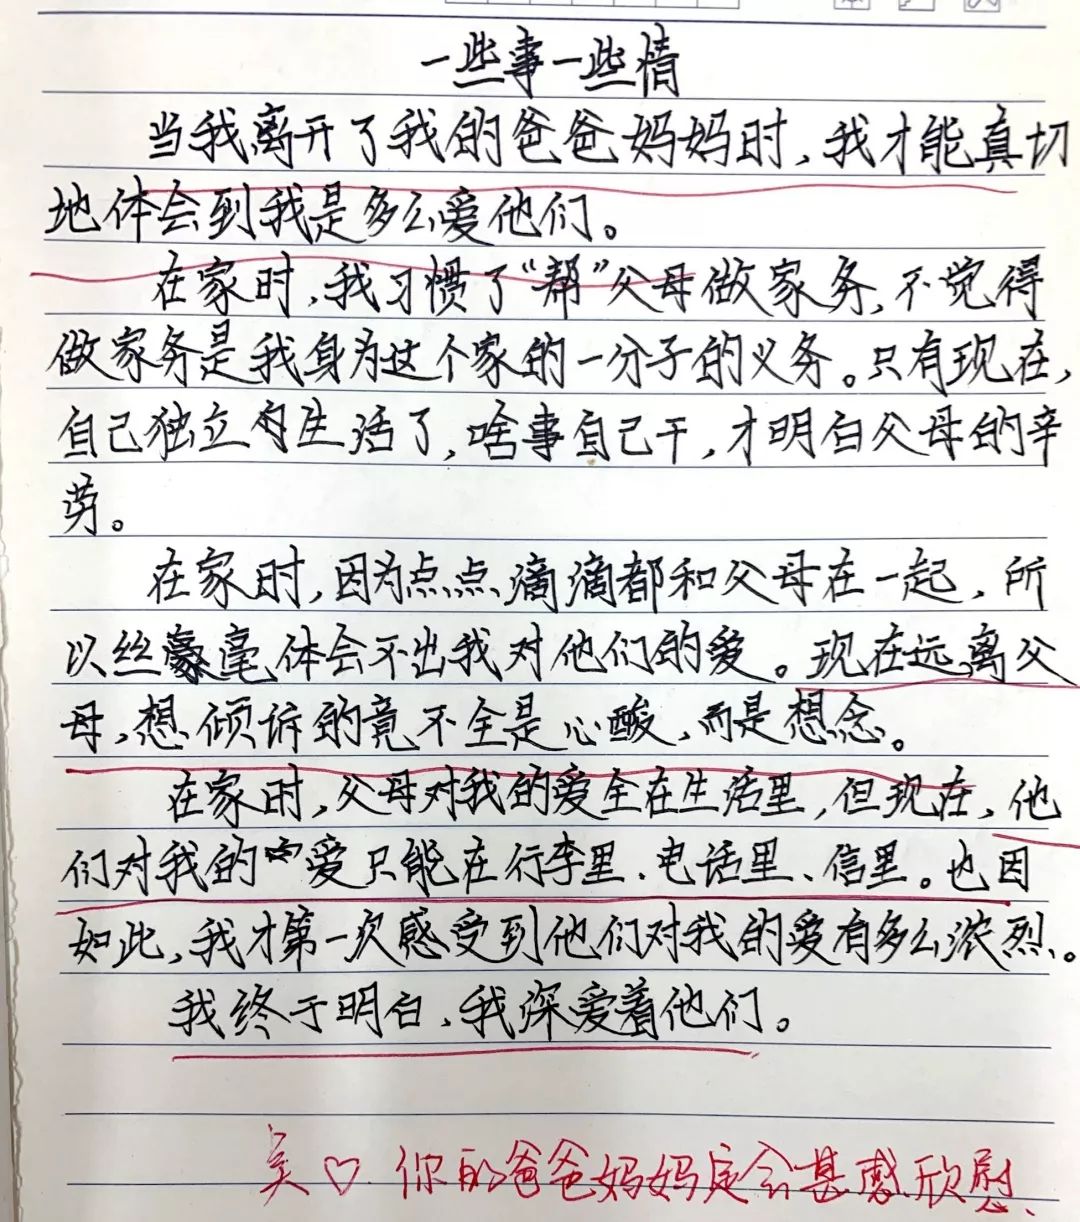 一些事一些情
当我离开了我的爸爸妈妈时，我才能真切
地体会到我是多么爱他们。
在家时，我习惯了“帮”父母做家务，不觉得
做家务是我身为这个家的一分子的义务。只有现在，
自己独立的生活了，啥事自己干，才明白父母的辛
劳。
在家时，因为点点滴滴都和父母在一起，所
以丝毫体会不出我对他们的爱。现在远离父
母，想倾诉的竟不全是心酸，而是想念。
在家时，父母对我的爱全在生活里，但现在，他
们对我的爱只能在行李里、电话里、信里。也因
如此，我才第一次感受到他们对我的爱有多么浓烈。
我终于明白，我深爱着他们。
♡ 你的爸爸妈妈定会甚感欣慰、